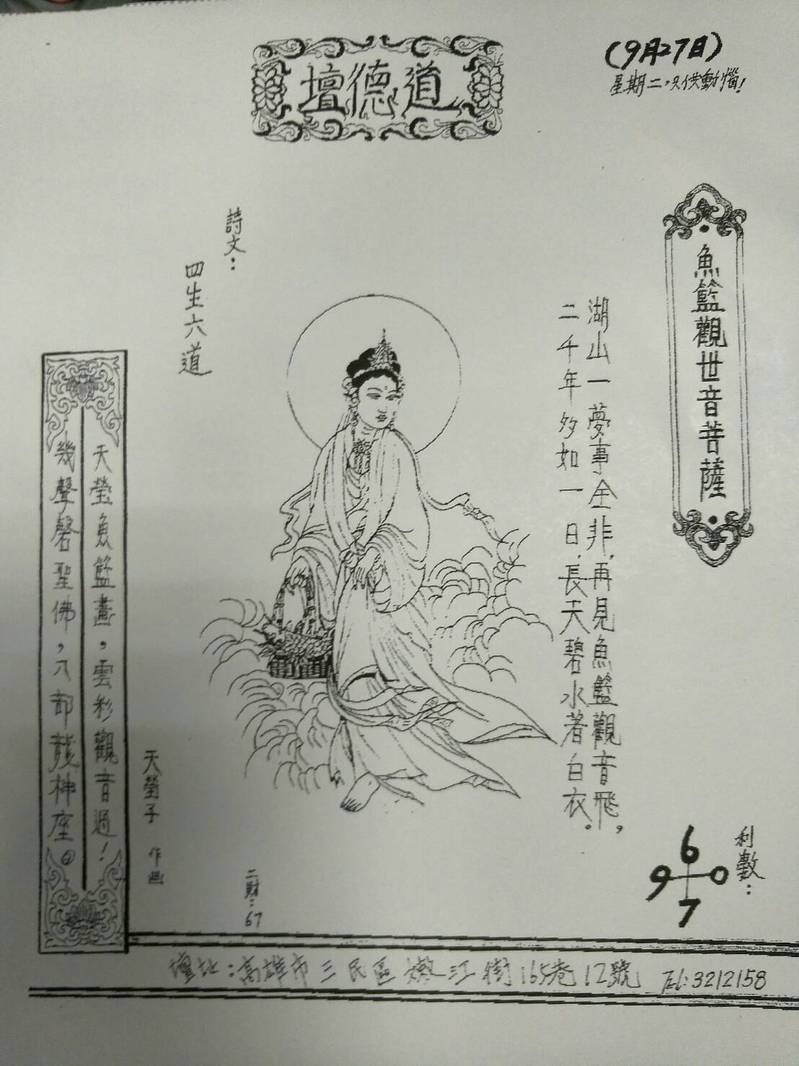 道德壇
(9月27日)
星期二，只供動惱！
魚籃觀世音菩薩
湖山一夢事全非，再見魚籃觀音飛，
二千年多如一日，長天碧水著白衣。
詩文：
四生六道
天瑩魚籃畫，雲彩觀音過！
幾聲磬聖佛，八部龍神座。
天瑩子 作画
二財：67
利數：
6
9 0
7
壇址：高雄市三民區嫩江街165巷12號 Tel:3212158